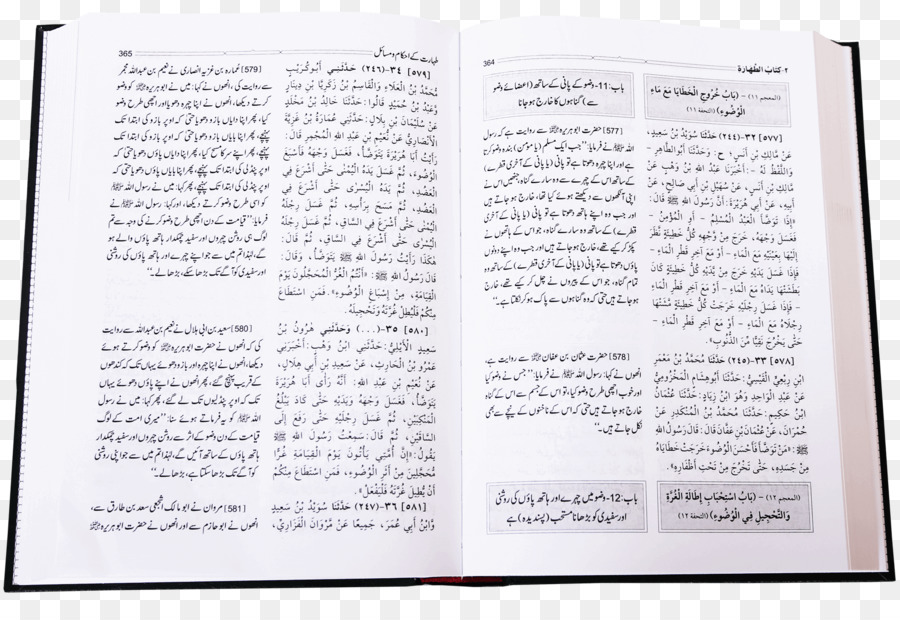 ٢- كتابُ الطَّهارة
364
(المعجم ١١) - (بَابُ خُرُوجِ الْخَطَايَا مَعَ مَاءِ
الْوُضُوءِ) (التحفة ١١)
[٥٧٧] ٣٢-(٢٤٤) حَدَّثَنَا سُوَيْدُ بْنُ سَعِيدٍ،
عَنْ مَالِكِ بْنِ أَنَسٍ؛ ح: وَحَدَّثَنَا أَبُو الطَّاهِرِ -
وَاللَّفْظُ لَهُ -: أَخْبَرَنَا عَبْدُ اللهِ بْنُ وَهْبٍ عَنْ
مَالِكِ بْنِ أَنَسٍ، عَنْ سُهَيْلِ بْنِ أَبِي صَالِحٍ، عَنْ
أَبِيهِ، عَنْ أَبِي هُرَيْرَةَ؛ أَنَّ رَسُولَ اللهِ ﷺ قَالَ:
«إِذَا تَوَضَّأَ الْعَبْدُ الْمُسْلِمُ - أَوِ الْمُؤْمِنُ -
فَغَسَلَ وَجْهَهُ، خَرَجَ مِنْ وَجْهِهِ كُلُّ خَطِيئَةٍ نَظَرَ
إِلَيْهَا بِعَيْنَيْهِ مَعَ الْمَاءِ - أَوْ مَعَ آخِرِ قَطْرِ الْمَاءِ -
فَإِذَا غَسَلَ يَدَيْهِ خَرَجَ مِنْ يَدَيْهِ كُلُّ خَطِيئَةٍ كَانَ
بَطَشَتْهَا يَدَاهُ مَعَ الْمَاءِ - أَوْ مَعَ آخِرِ قَطْرِ الْمَاءِ
- فَإِذَا غَسَلَ رِجْلَيْهِ خَرَجَتْ كُلُّ خَطِيئَةٍ مَشَتْهَا
رِجْلَاهُ مَعَ الْمَاءِ - أَوْ مَعَ آخِرِ قَطْرِ الْمَاءِ -
حَتَّى يَخْرُجَ نَقِيًّا مِنَ الذُّنُوبِ».
[٥٧٨] ٣٣-(٢٤٥) حَدَّثَنَا مُحَمَّدُ بْنُ مَعْمَرِ
ابْنِ رِبْعِيٍّ الْقَيْسِيُّ: حَدَّثَنَا أَبُو هِشَامٍ الْمَخْزُومِيُّ
عَنْ عَبْدِ الْوَاحِدِ وَهُوَ ابْنُ زِيَادٍ: حَدَّثَنَا عُثْمَانُ
ابْنُ حَكِيمٍ: حَدَّثَنَا مُحَمَّدُ بْنُ الْمُنْكَدِرِ عَنْ
حُمْرَانَ، عَنْ عُثْمَانَ بْنِ عَفَّانَ قَالَ: قَالَ رَسُولُ اللهِ
ﷺ: «مَنْ تَوَضَّأَ فَأَحْسَنَ الْوُضُوءَ خَرَجَتْ خَطَايَاهُ
مِنْ جَسَدِهِ، حَتَّى تَخْرُجَ مِنْ تَحْتِ أَظْفَارِهِ».
(المعجم ١٢) - (بَابُ اسْتِحْبَابِ إِطَالَةِ الْغُرَّةِ
وَالتَّحْجِيلِ فِي الْوُضُوءِ) (التحفة ١٢)
باب:11-وضو کے پانی کے ساتھ (اعضائے وضو
سے) گناہوں کا خارج ہو جانا
[577] حضرت ابوہریرہ ؓ سے روایت ہے کہ رسول
اللہ ﷺ نے فرمایا: ”جب ایک مسلم (یا مومن) بندہ وضو کرتا
ہے اور اپنا چہرہ دھوتا ہے تو پانی (یا پانی کے آخری قطرے)
کے ساتھ اس کے چہرے سے وہ سارے گناہ، جنھیں اس نے
اپنی آنکھوں سے دیکھتے ہوئے کیا تھا، خارج ہو جاتے ہیں
اور جب وہ اپنے ہاتھ دھوتا ہے تو پانی (یا پانی کے آخری
قطرے) کے ساتھ وہ سارے گناہ، جو اس کے ہاتھوں نے
پکڑ کر کیے تھے، خارج ہو جاتے ہیں اور جب وہ اپنے دونوں
پاؤں دھوتا ہے تو پانی (یا پانی کے آخری قطرے) کے ساتھ وہ
تمام گناہ، جو اس کے پیروں نے چل کر کیے تھے، خارج
ہو جاتے ہیں حتی کہ وہ گناہوں سے پاک ہو کر نکلتا ہے۔“
[578] حضرت عثمان بن عفان ؓ سے روایت ہے،
انھوں نے کہا: رسول اللہ ﷺ نے فرمایا: ”جس نے وضو کیا
اور خوب اچھی طرح وضو کیا، تو اس کے جسم سے اس کے گناہ
خارج ہو جاتے ہیں حتی کہ اس کے ناخنوں کے نیچے سے بھی
نکل جاتے ہیں۔“
باب:12-وضو میں چہرے اور ہاتھ پاؤں کی روشنی
اور سفیدی کو بڑھانا مستحب (پسندیدہ) ہے
طہارت کے احکام و مسائل
365
[٥٧٩] ٣٤-(٢٤٦) حَدَّثَنِي أَبُو كُرَيْبٍ
مُحَمَّدُ بْنُ الْعَلَاءِ وَالْقَاسِمُ بْنُ زَكَرِيَّا بْنِ دِينَارٍ
وَعَبْدُ بْنُ حُمَيْدٍ قَالُوا: حَدَّثَنَا خَالِدُ بْنُ مَخْلَدٍ
عَنْ سُلَيْمَانَ بْنِ بِلَالٍ: حَدَّثَنِي عُمَارَةُ بْنُ غَزِيَّةَ
الْأَنْصَارِيُّ عَنْ نُعَيْمِ بْنِ عَبْدِ اللهِ الْمُجْمِرِ قَالَ:
رَأَيْتُ أَبَا هُرَيْرَةَ يَتَوَضَّأُ، فَغَسَلَ وَجْهَهُ فَأَسْبَغَ
الْوُضُوءَ، ثُمَّ غَسَلَ يَدَهُ الْيُمْنَى حَتَّى أَشْرَعَ فِي
الْعَضُدِ، ثُمَّ يَدَهُ الْيُسْرَى حَتَّى أَشْرَعَ فِي
الْعَضُدِ، ثُمَّ مَسَحَ بِرَأْسِهِ، ثُمَّ غَسَلَ رِجْلَهُ
الْيُمْنَى حَتَّى أَشْرَعَ فِي السَّاقِ، ثُمَّ غَسَلَ رِجْلَهُ
الْيُسْرَى حَتَّى أَشْرَعَ فِي السَّاقِ، ثُمَّ قَالَ:
هٰكَذَا رَأَيْتُ رَسُولَ اللهِ ﷺ يَتَوَضَّأُ، وَقَالَ:
قَالَ رَسُولُ اللهِ ﷺ: «أَنْتُمُ الْغُرُّ الْمُحَجَّلُونَ يَوْمَ
الْقِيَامَةِ، مِنْ إِسْبَاغِ الْوُضُوءِ، فَمَنِ اسْتَطَاعَ
مِنْكُمْ فَلْيُطِلْ غُرَّتَهُ وَتَحْجِيلَهُ».
[٥٨٠] ٣٥-(...) وَحَدَّثَنِي هَرُونُ بْنُ
سَعِيدٍ الْأَيْلِيُّ: حَدَّثَنِي ابْنُ وَهْبٍ: أَخْبَرَنِي
عَمْرُو بْنُ الْحَارِثِ، عَنْ سَعِيدِ بْنِ أَبِي هِلَالٍ،
عَنْ نُعَيْمِ بْنِ عَبْدِ اللهِ؛ أَنَّهُ رَأَى أَبَا هُرَيْرَةَ
يَتَوَضَّأُ، فَغَسَلَ وَجْهَهُ وَيَدَيْهِ حَتَّى كَادَ يَبْلُغُ
الْمَنْكِبَيْنِ، ثُمَّ غَسَلَ رِجْلَيْهِ حَتَّى رَفَعَ إِلَى
السَّاقَيْنِ، ثُمَّ قَالَ: سَمِعْتُ رَسُولَ اللهِ ﷺ
يَقُولُ: «إِنَّ أُمَّتِي يَأْتُونَ يَوْمَ الْقِيَامَةِ غُرًّا
مُحَجَّلِينَ مِنْ أَثَرِ الْوُضُوءِ، فَمَنِ اسْتَطَاعَ مِنْكُمْ
أَنْ يُطِيلَ غُرَّتَهُ فَلْيَفْعَلْ».
[٥٨١] ٣٦-(٢٤٧) حَدَّثَنَا سُوَيْدُ بْنُ سَعِيدٍ
وَابْنُ أَبِي عُمَرَ، جَمِيعًا عَنْ مَرْوَانَ الْفَزَارِيِّ،
[579] عمارہ بن غزیہ انصاری نے نعیم بن عبداللہ مجمر
سے روایت کی، انھوں نے کہا: میں نے ابوہریرہ ؓ کو وضو
کرتے دیکھا، انھوں نے اپنا چہرہ دھویا اور اچھی طرح وضو
کیا، پھر اپنا دایاں بازو دھویا حتی کہ اوپر بازو کی ابتدا تک
پہنچے، پھر اپنا بایاں بازو دھویا حتی کہ اوپر بازو کی ابتدا تک
پہنچے، پھر اپنے سر کا مسح کیا، پھر اپنا دایاں پاؤں دھویا حتی کہ
اوپر پنڈلی کی ابتدا تک پہنچے، پھر اپنا بایاں پاؤں دھویا حتی کہ
اوپر پنڈلی کی ابتدا تک پہنچے، پھر کہا: میں نے رسول اللہ ﷺ
کو اسی طرح وضو کرتے ہوئے دیکھا، اور کہا: رسول اللہ ﷺ نے
فرمایا: ”قیامت کے دن اچھی طرح وضو کرنے کی وجہ سے تم
لوگ ہی روشن چہروں اور سفید چمکدار ہاتھ پاؤں والے ہو
گے، لہٰذا تم میں سے جو اپنے چہرے اور ہاتھ پاؤں کی روشنی
اور سفیدی کو آگے تک بڑھا سکے، بڑھالے۔“
[580] سعید بن ابی ہلال نے نعیم بن عبداللہ سے روایت
کی کہ انھوں نے حضرت ابوہریرہ ؓ کو وضو کرتے ہوئے
دیکھا، انھوں نے اپنا چہرہ اور بازو دھوئے یہاں تک کہ کندھوں
کے قریب پہنچ گئے، پھر انھوں نے اپنے پاؤں دھوئے یہاں
تک کہ اوپر پنڈلیوں تک لے گئے، پھر کہا: میں نے رسول
اللہ ﷺ کو یہ فرماتے ہوئے سنا: ”میری امت کے لوگ
قیامت کے دن وضو کے اثر سے روشن چہروں اور سفید چمکدار
ہاتھ پاؤں کے ساتھ آئیں گے، لہٰذا تم میں سے جو اپنی روشنی
کو آگے تک بڑھا سکتا ہے، بڑھالے۔“
[581] مروان نے ابومالک اشجعی سعد بن طارق سے،
انھوں نے ابوحازم سے اور انھوں نے حضرت ابوہریرہ ؓ